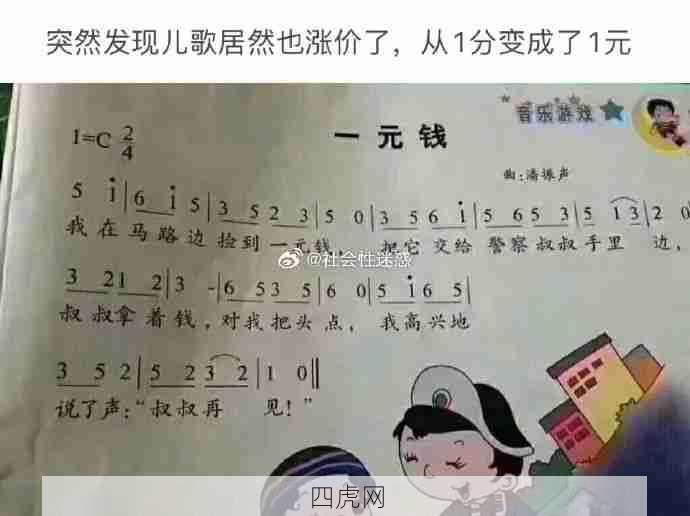 突然发现儿歌居然也涨价了，从1分变成了1元
音乐游戏
1=C 2/4
一元钱
曲：潘振声
5 i|6 i 5|3 5 2 3|5 0|3 5 6 i|5 6 5 3|5 1 3|2 0
我在马路边捡到一元钱，把它交给警察叔叔手里边，
@社会性迷惑
3 2 1 2|3 -|6 5 3 5|6 0|5 i 6 5|
叔叔拿着钱，对我把头点，我高兴地
3 5 2|5 2 3 2|1 0‖
说了声：“叔叔再见！”
四虎网